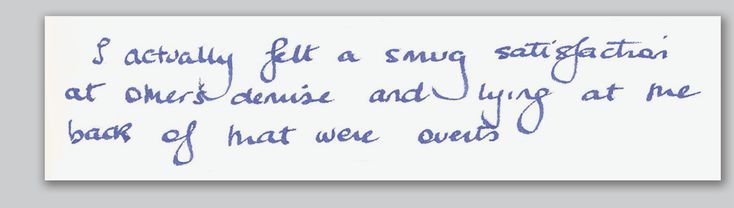 I actually felt a smug satisfaction
at others demise and lying at the
back of that were overts